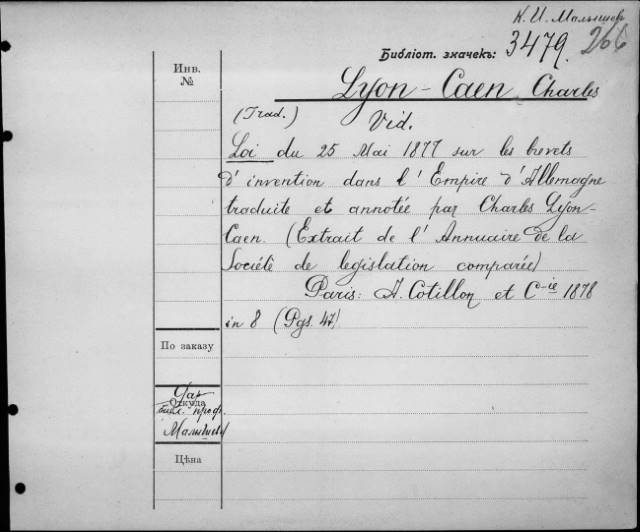 К. И. Малышев
Библіот. значекъ: 3479. 266
Инв.
№
Lyon-Caen Charles
(Trad.) Vid.
Loi du 25 Mai 1877 sur les brevets
d'invention dans l'Empire d'Allemagne
traduite et annotée par Charles Lyon-
Caen. (Extrait de l'Annuaire de la
Société de legislation comparée)
Paris: A. Cotillon et C-ie 1878
in 8 (Pgs. 47)
По заказу
Дар
Откуда
библ. проф.
Малышева
Цѣна